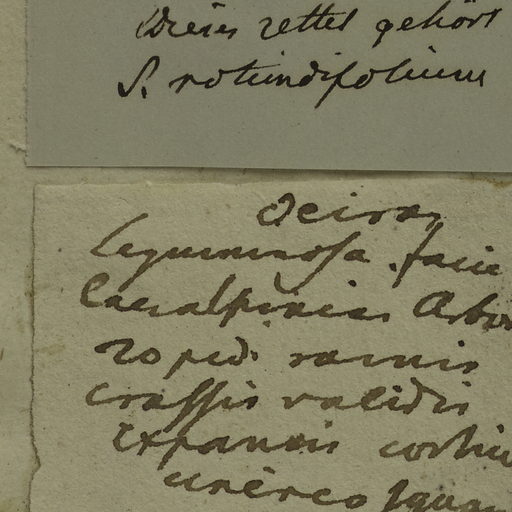 Dieses zettel gehört
S. rotundifolium
Oeiras
Leguminosa. facie
Caesalpiniae Arbor
20 ped. ramis
crassis validis
expansis cortice
cinereo squam